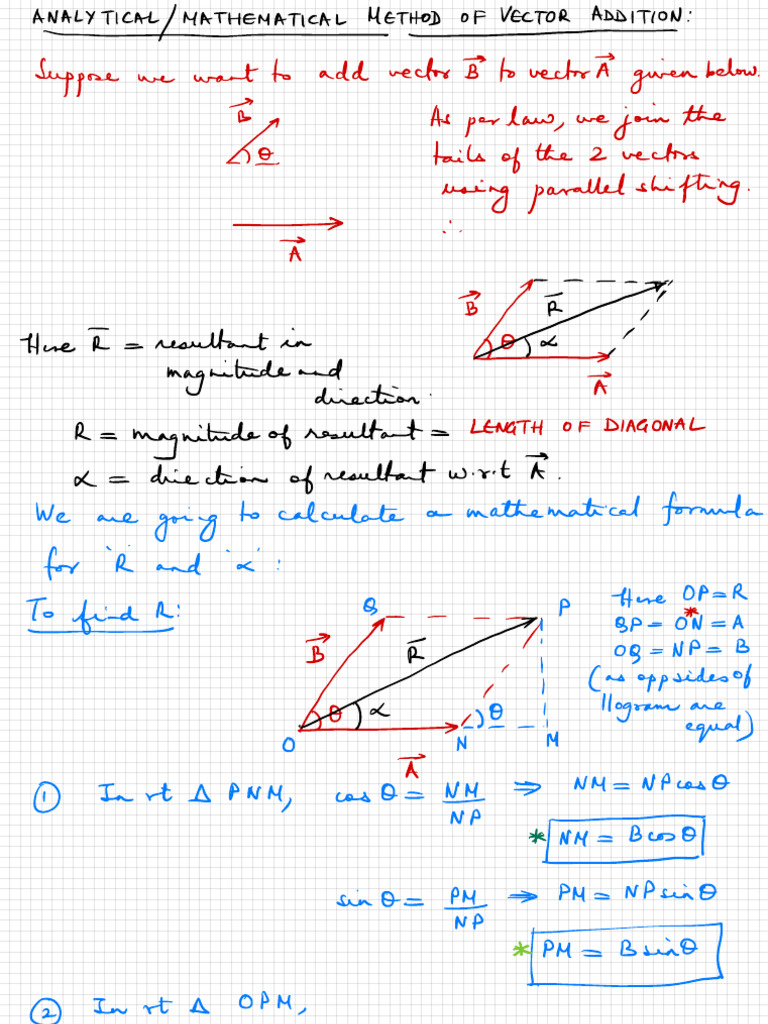 ANALYTICAL/MATHEMATICAL METHOD OF VECTOR ADDITION:
Suppose we want to add vector B⃗ to vector A⃗ given below.
B⃗
θ
A⃗
As per law, we join the
tails of the 2 vectors
using parallel shifting.
∴
B⃗
R̄
θ
α
A⃗
Here R̄ = resultant in
magnitude and
direction.
R = magnitude of resultant = LENGTH OF DIAGONAL
α = direction of resultant w.r.t A⃗.
We are going to calculate a mathematical formula
for 'R' and 'α':
To find R:
Q
P
B⃗
R̄
θ
α
θ
O
N
M
A⃗
Here OP = R
*
QP = ON = A
OQ = NP = B
(as opp sides of
llogram are
equal)
① In rt Δ PNM, cos θ = NM/NP ⇒ NM = NP cos θ
* NM = B cos θ
sin θ = PM/NP ⇒ PM = NP sin θ
* PM = B sin θ
② In rt Δ OPM,